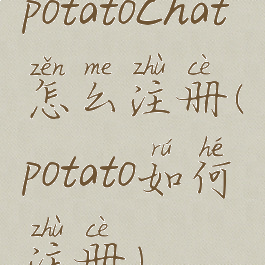 potatoChat
zěn me zhù cè
怎么注册(
rú hé
potato如何
zhù cè
注册)